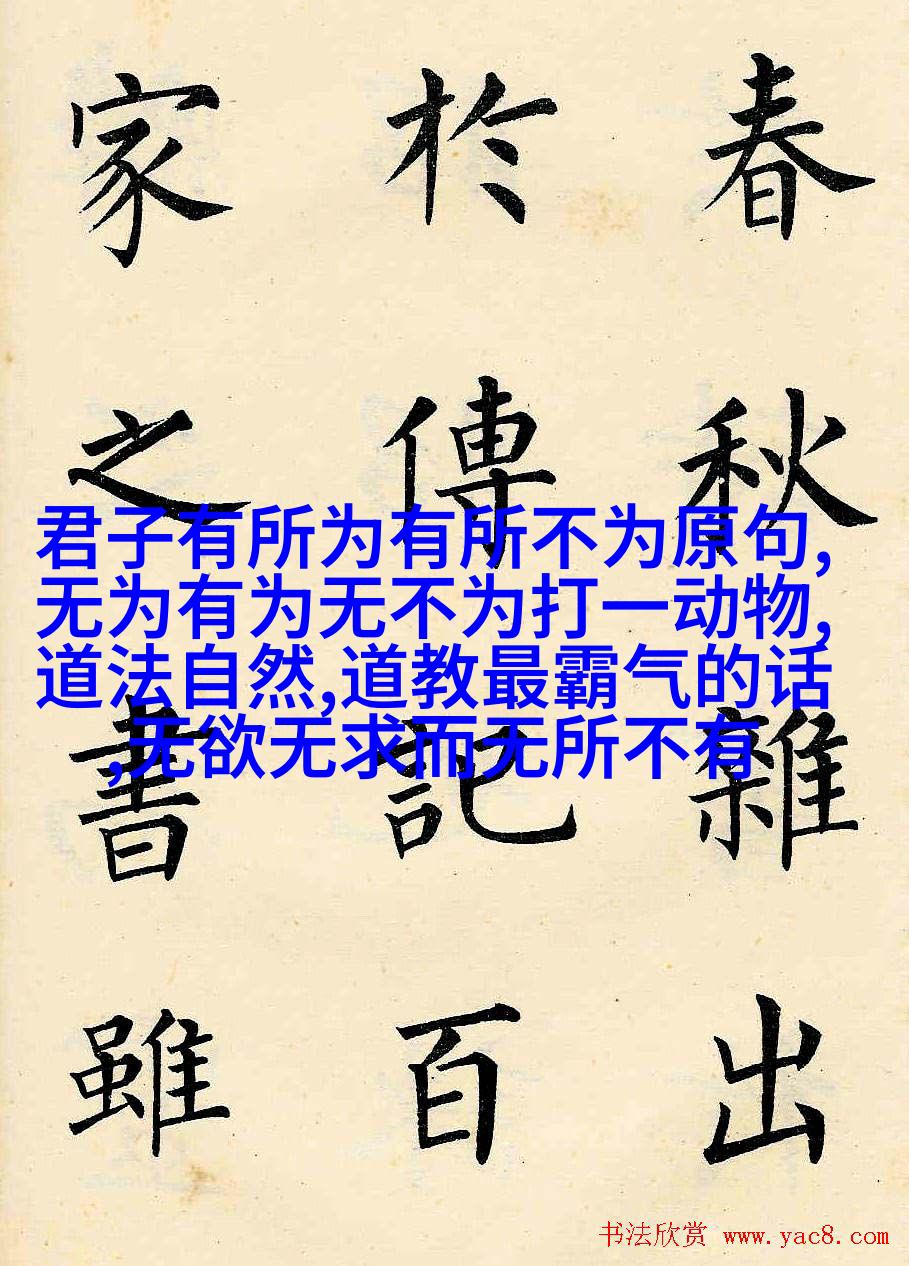 春秋雜出
於傳記百
家之書雖
君子有所为有所不为原句,
无为有为无不为打一动物,
道法自然,道教最霸气的话
,无欲无求而无所不有
书法欣赏 www.yac8.com